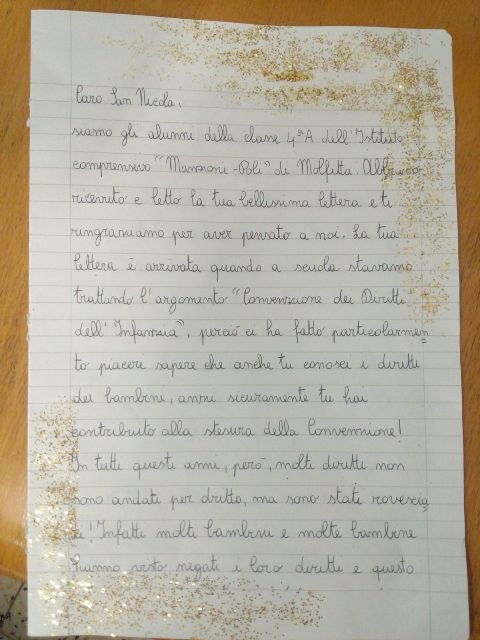 Caro San Nicola,
siamo gli alunni della classe 4ªA dell'Istituto
comprensivo "Manzoni-Poli" di Molfetta. Abbiamo
ricevuto e letto la tua bellissima lettera e ti
ringraziamo per aver pensato a noi. La tua
lettera è arrivata quando a scuola stavamo
trattando l'argomento "Convenzione dei Diritti
dell'Infanzia", perciò ci ha fatto particolarmen
to piacere sapere che anche tu conosci i diritti
dei bambini, anzi sicuramente tu hai
contribuito alla stesura della Convenzione!
In tutti questi anni, però, molti diritti non
sono andati per dritto, ma sono stati rovescia
ti! Infatti molti bambini e molte bambine
hanno visto negati i loro diritti e questo